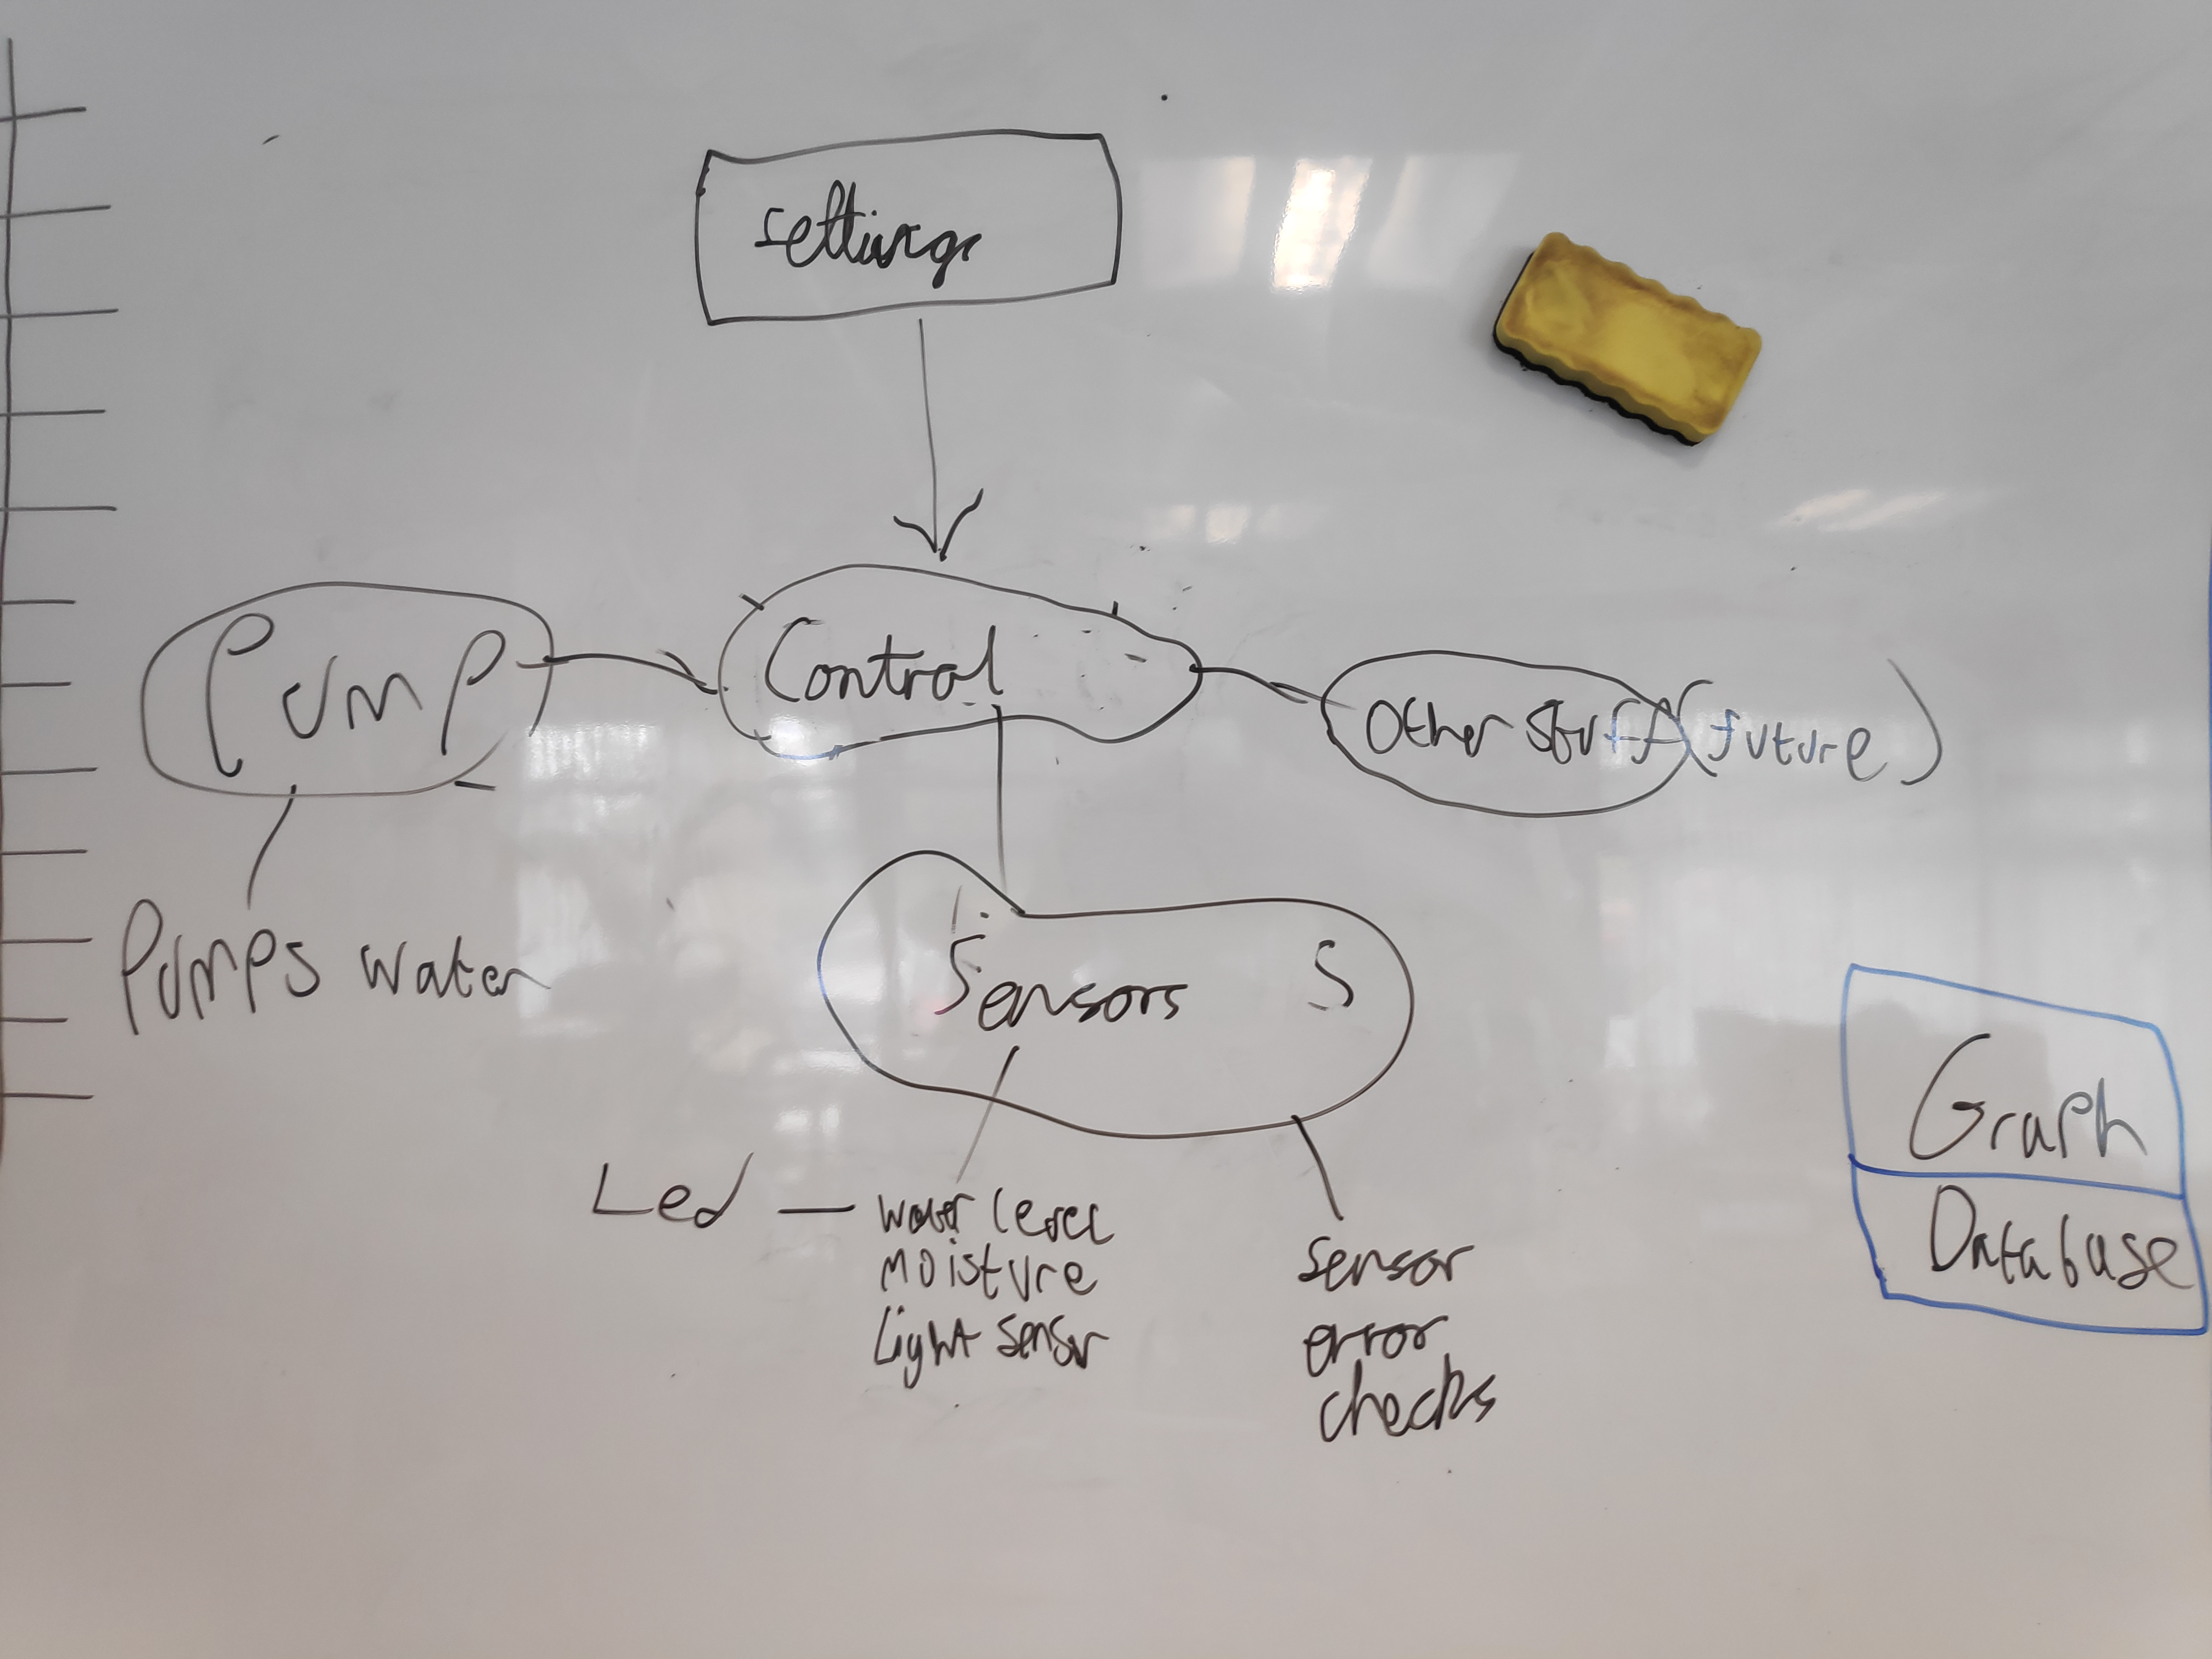 settings
Control
Pump
Other stuff (future)
Pumps water
Sensors S
Led — water level
moisture
Light sensor
sensor
error
checks
Graph
Database